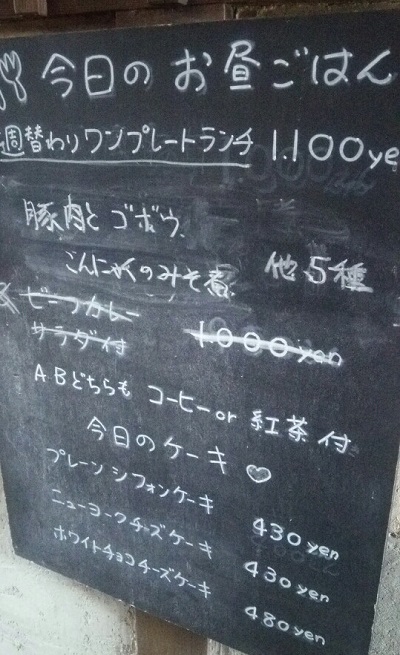 今日の お昼ごはん
週替わりワンプレートランチ 1.100yen
豚肉と ゴボウ、
こんにゃくのみそ煮 他5種
ビーフカレー
サラダ付 1000yen
ABどちらも コーヒー or 紅茶 付
今日のケーキ ♡
プレーンシフォンケーキ 430yen
ニューヨークチーズケーキ 430yen
ホワイトチョコチーズケーキ 480yen